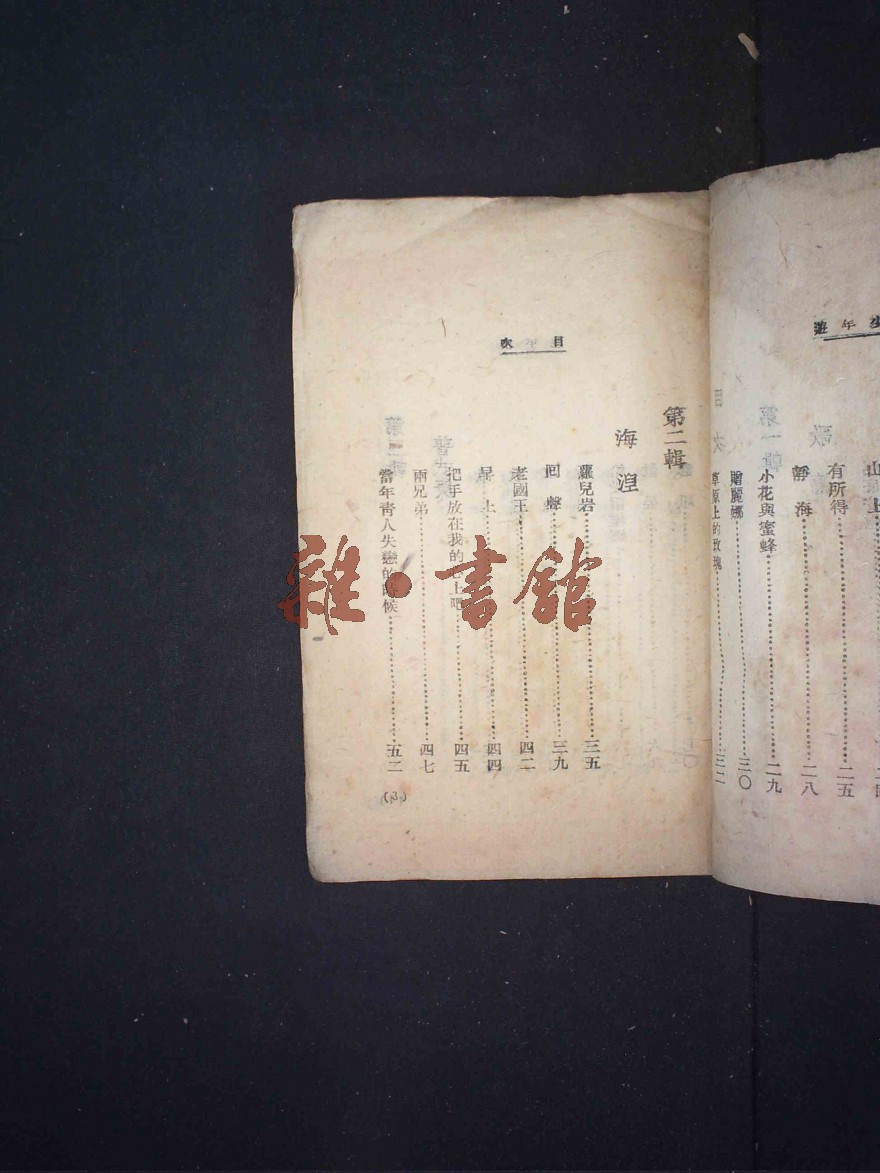 少年遊
山上
有所得……二五
靜海……二八
小花與蜜蜂……二九
贈麗娜……三〇
草原上的玫瑰……三二
目次
第二輯
海涅
羅兒岩……三五
回聲……三九
老國王……四二
岸上……四四
把手放在我的心上吧……四五
兩兄弟……四七
當年靑人失戀的時候……五二
雜·書館